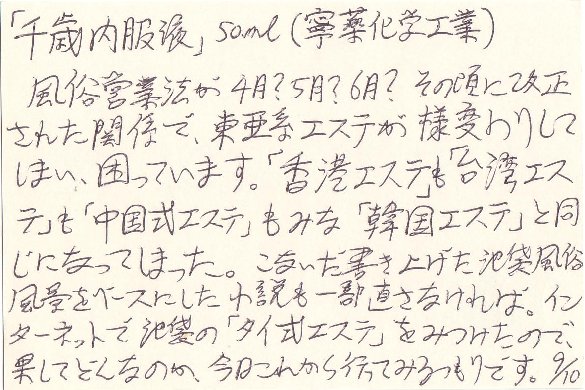 「千歳内服液」50ml(寧薬化学工業)
風俗営業法が4月?5月?6月?その頃に改正
された関係で、東亜系エステが様変わりして
しまい、困っています。「香港エステ」も「台湾エス
テ」も「中国式エステ」もみな「韓国エステ」と同
じになってしまった。こないだ書き上げた池袋風俗
風景をベースにした小説も一部直さなければ。イン
ターネットで池袋の「タイ式エステ」をみつけたので、
果してどんなのか、今日これから行ってみるつもりです。9/10